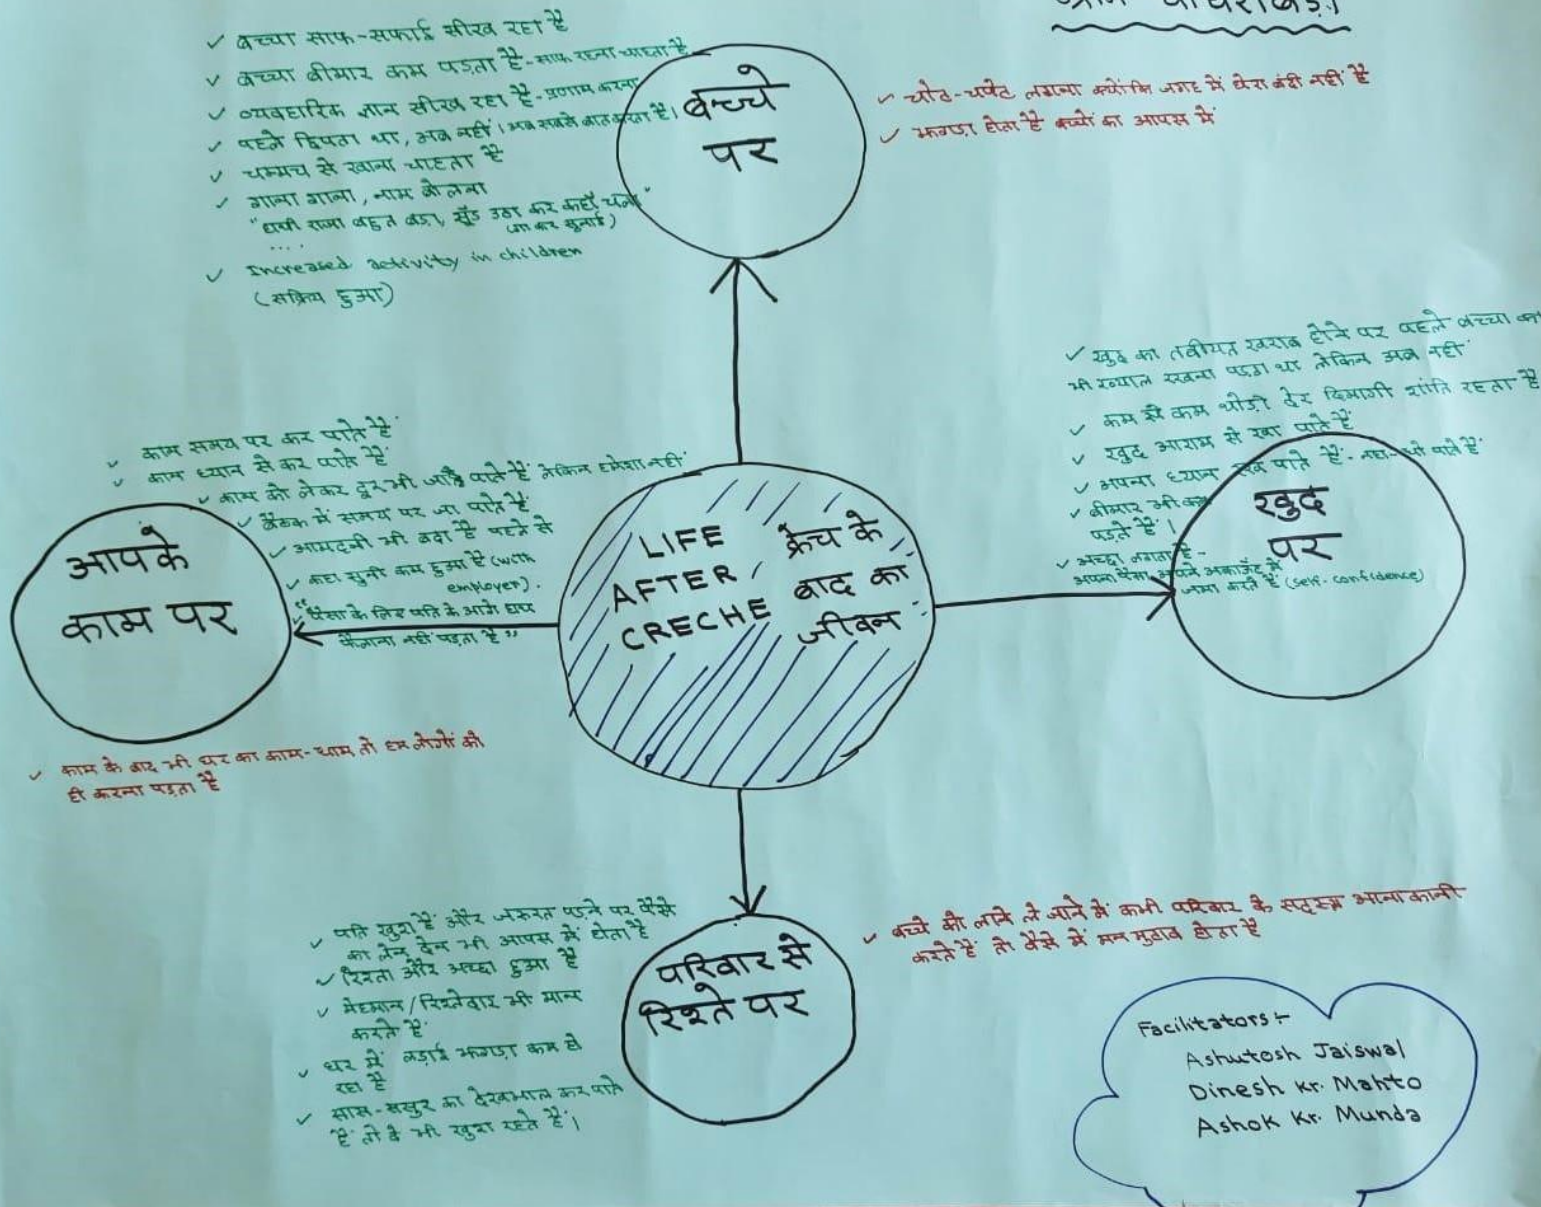 ✓ बच्चा साफ-सफाई सीख रहा है
✓ बच्चा बीमार कम पड़ता है - साफ रहना चाहता है
✓ व्यवहारिक ज्ञान सीख रहा है - प्रणाम करना
✓ पहले छिपता था, अब नहीं। अब सबसे बात करता है।
✓ चम्मच से खाना चाहता है
✓ गाना गाना, नाम बोलना
"हाथी राजा बहुत बड़ा, सूँड उठा कर कहाँ चले"
.... (गा कर सुनाई)
✓ Increased activity in children
(सक्रिय हुआ)
बच्चे
पर
✓ चोट-चपेट लगना क्योंकि जगह में घेरा बंदी नहीं है
✓ झगड़ा होता है बच्चों का आपस में
✓ खुद का तबीयत खराब होने पर पहले बच्चा का
भी ख्याल रखना पड़ता था लेकिन अब नहीं
✓ कम से कम थोड़ी देर दिमागी शांति रहता है
✓ खुद आराम से खा पाते हैं
✓ अपना ध्यान रख पाते हैं - नहा-धो पाते हैं
✓ बीमार भी कम
पड़ते हैं।
✓ अच्छा लगता है -
अपना पैसा अपने अकाउंट में
जमा करते हैं (self-confidence)
खुद
पर
✓ काम समय पर कर पाते हैं
✓ काम ध्यान से कर पाते हैं
✓ काम को लेकर दूर भी जा पाते हैं लेकिन हमेशा नहीं
✓ बैठक में समय पर जा पाते हैं
✓ आमदनी भी बढ़ा है पहले से
✓ कहा सुनी कम हुआ है (with
employer).
"पैसा के लिए पति के आगे हाथ
फैलाना नहीं पड़ता है"
आपके
काम पर
LIFE
AFTER
CRECHE
क्रेच के
बाद का
जीवन
✓ काम के बाद भी घर का काम-धाम तो हम लोगों को
ही करना पड़ता है
✓ पति खुश हैं और जरुरत पड़ने पर पैसे
का लेन देन भी आपस में होता है
✓ रिश्ता और अच्छा हुआ है
✓ मेहमान/रिश्तेदार भी मान्य
करते हैं
✓ घर में लड़ाई झगड़ा कम हो
रहा है
✓ सास-ससुर का देखभाल कर पाते
हैं तो वे भी खुश रहते हैं।
परिवार से
रिश्ते पर
✓ बच्चे को लाने ले जाने में कभी परिवार के सदस्य आनाकानी
करते हैं तो वैसे में मन मुटाव होता है
Facilitators:-
Ashutosh Jaiswal
Dinesh Kr. Mahto
Ashok Kr. Munda